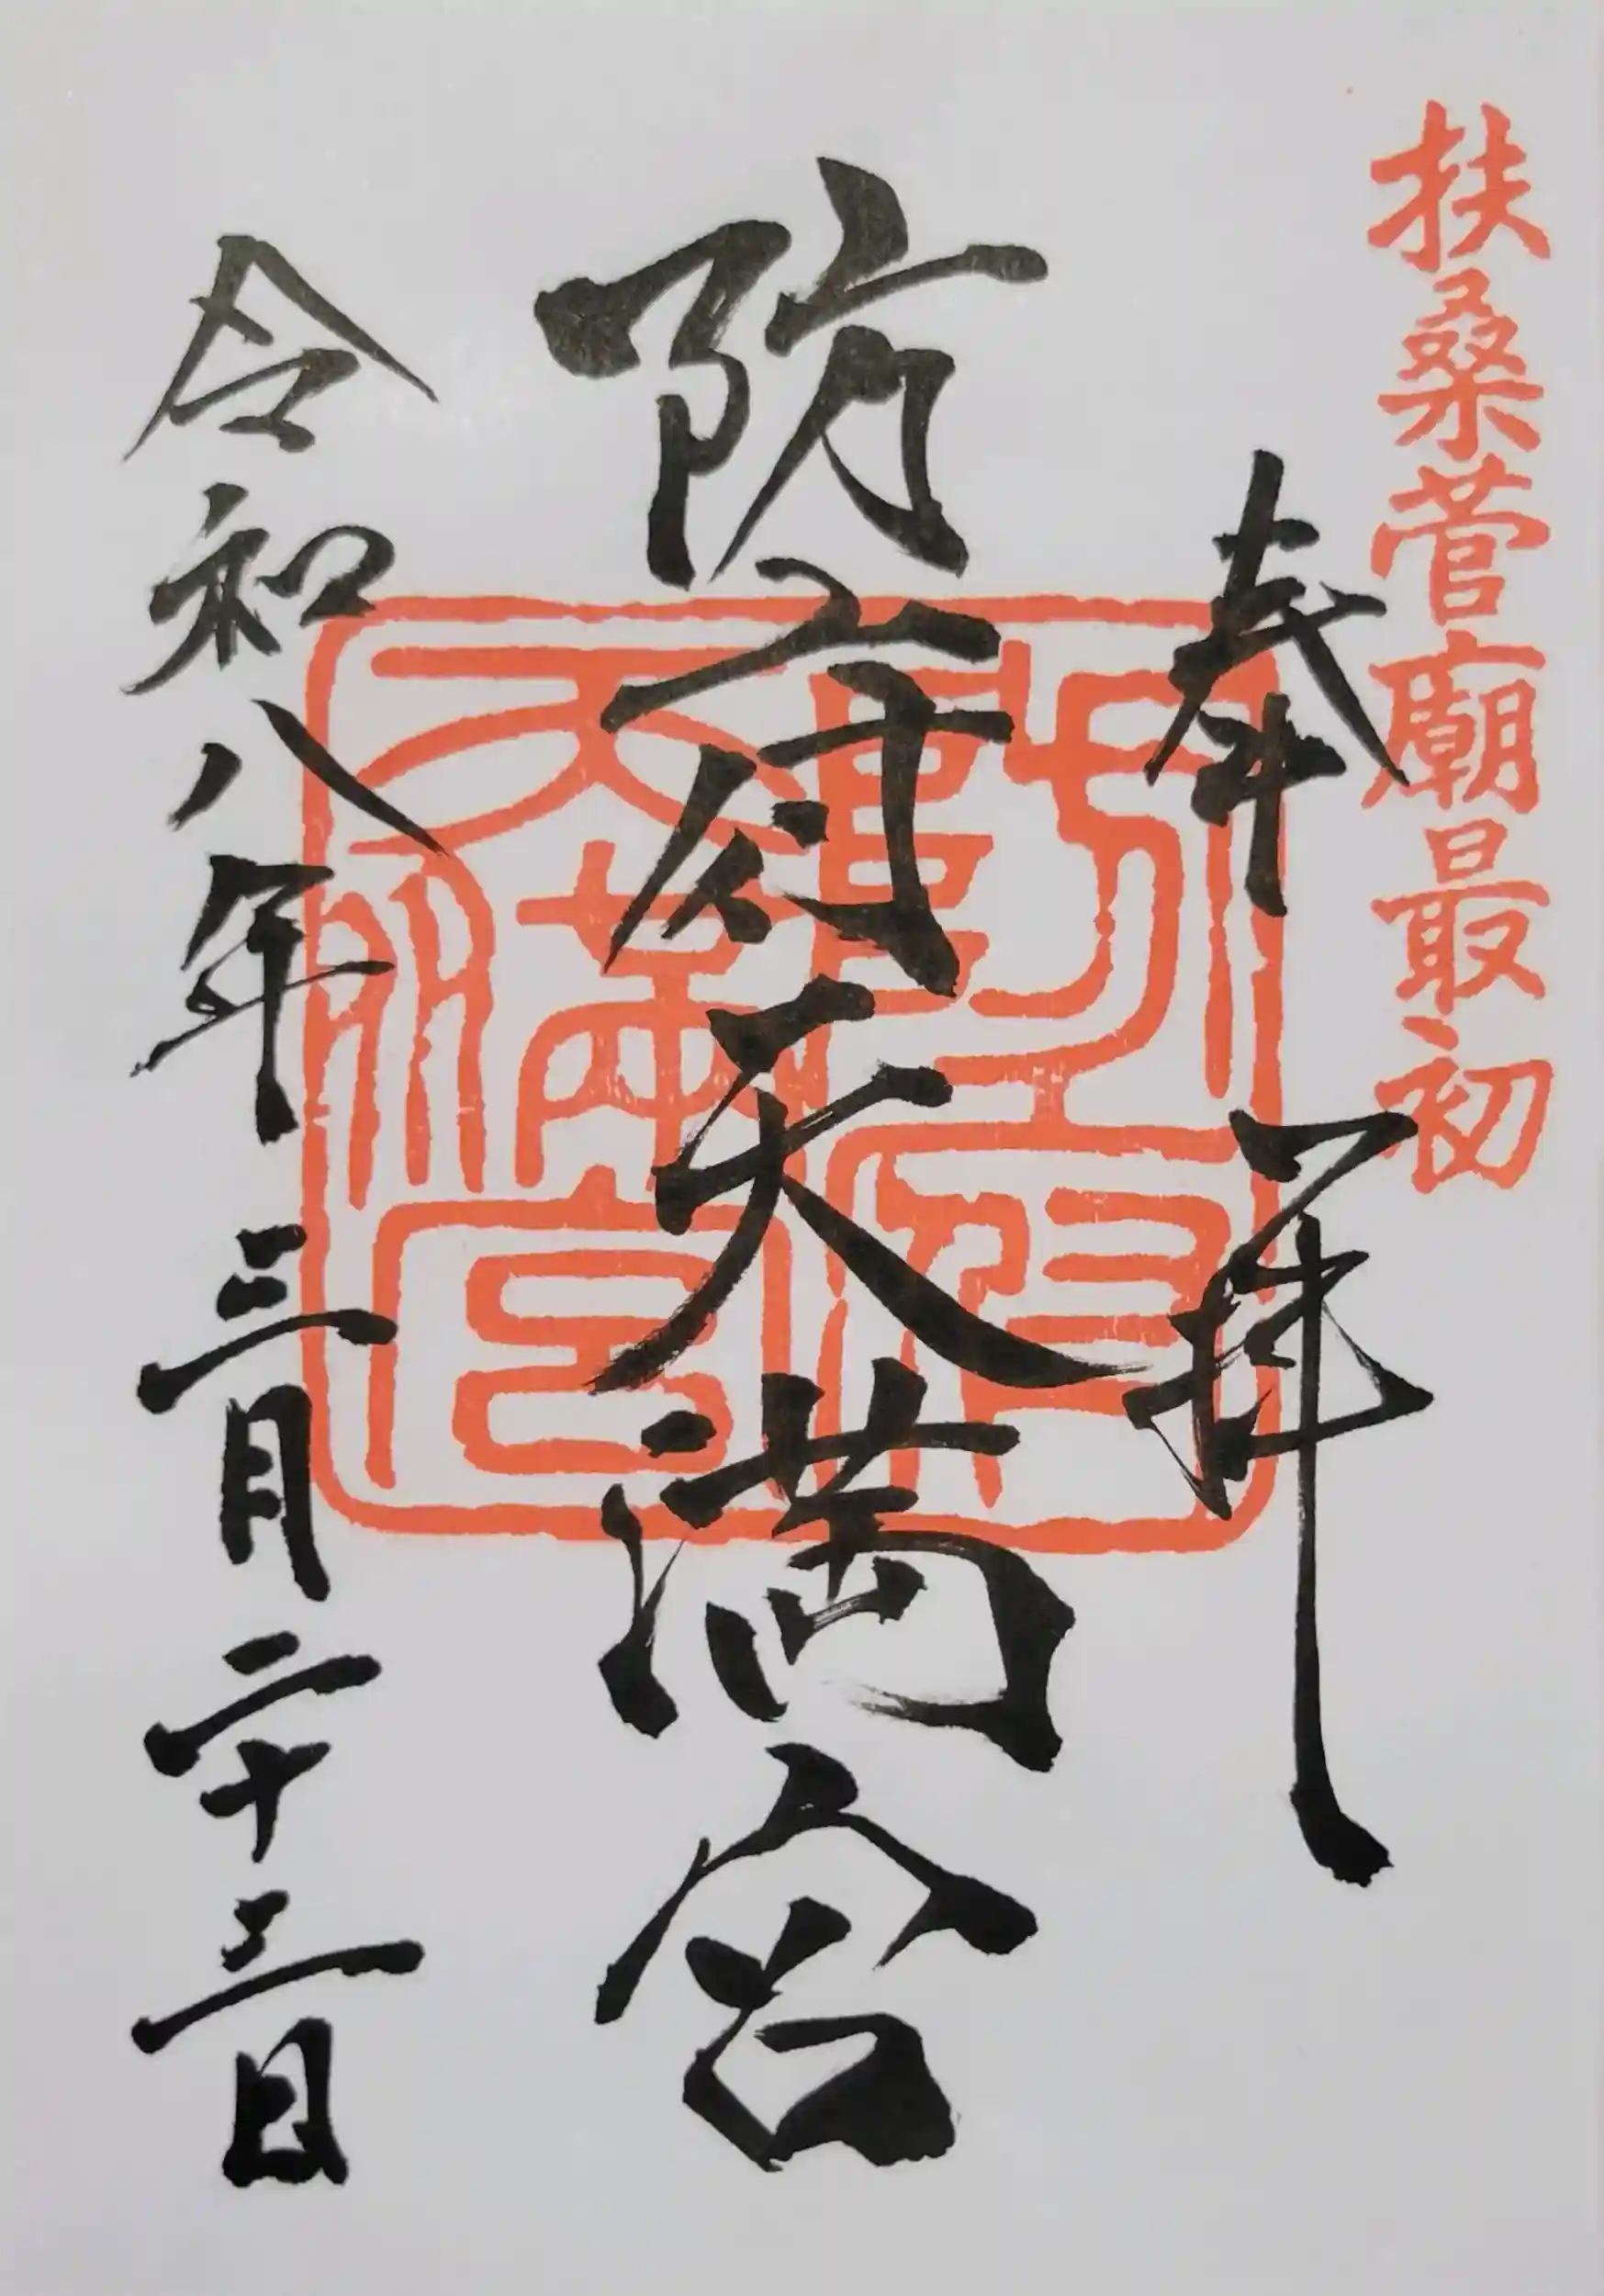 扶桑菅廟最初
奉拝
防府天満宮
令和八年三月二十三日
防府
天満宮